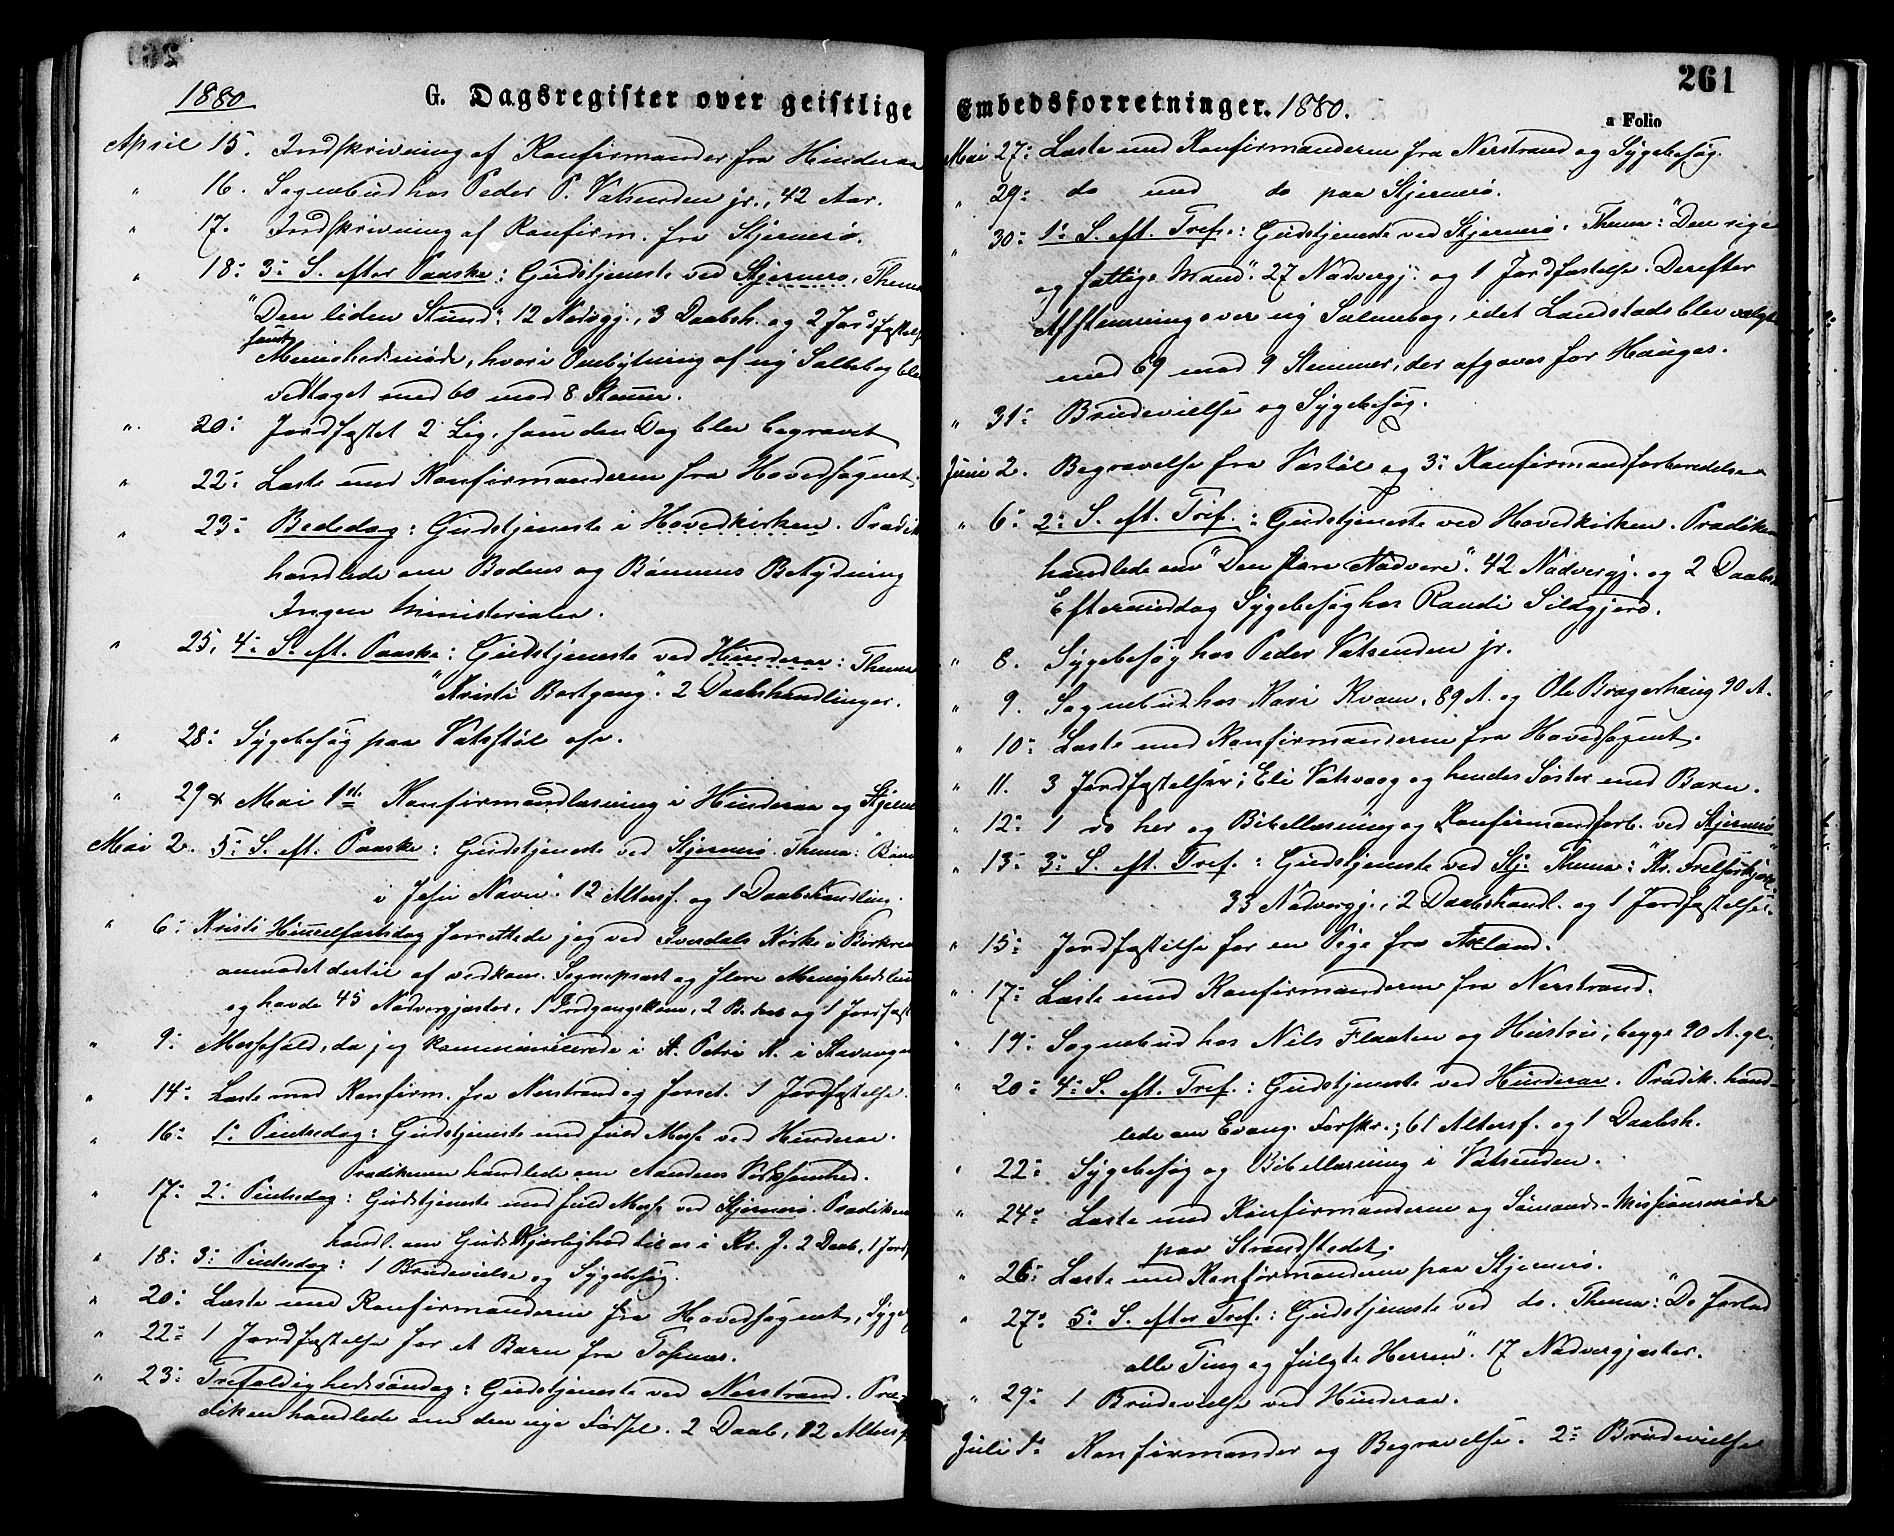 1880
G. Dagsregister over geistlige
April 15. Indskrivning af Konfirmander fra Hinderaa
" 16. Sognebud hos Peder P. Vatsenden jr., 42 Aar.
" 17. Indskrivning af Konfirm. fra Stjernerö.
" 18: 3: S. efter Paaske: Gudstjeneste ved Stjernerö, Thema
"Den liden Stund". 12 Nadvgj., 3 Daabsh. og 2 Jordfæstels
samt
Menighedsmøde, hvori Ombytning af ny Salmebog blev
vedtaget med 60 mod 8 Stemmer.
" 20: Jordfæstet 2 Lig, som den Dag blev begravet
" 22: Læste med Konfirmanderne fra Hovedsognet.
" 23: Bededag: Gudstjeneste i Hovedkirken. Prædik
handlede om Bodens og Bönnens Betydning
Ingen Ministerialer.
" 25, 4: S. eft. Paaske: Gudstjeneste ved Hinderaa: Thema
"Kristi Bortgang". 2 Daabshandlinger.
" 28: Sygebesög paa Vatsstöl
" 29 & Mai 1st. Konfirmandlæsning i Hinderaa og Stjerne
Mai 2. 5: S. eft. Paaske: Gudstjeneste ved Stjernerö. Thema: "Bön
i Jesu Navn". 12 Altersg. og 1 Daabshandling.
" 6: Kristi Himmelfartsdag forrettede jeg ved Ivesdals Kirke i Birkrem
anmodet dertil af vedkom. Sognepræst og flere Menighedslem
og havde 45 Nadvergjæster, 1 Indgangskone, 2 B. Daab og 1 Jordfæst
" 9: Messefald, da jeg kommunicerede i St. Petri K. i Stavanger
" 14: Læste med Konfirm. fra Nerstrand og forret. 1 Jordfæstelse.
" 16: 1: Pintsedag: Gudstjeneste med fuld Messe ved Hinderaa.
Prædikenen handlede om Aandens Virksomhed.
" 17: 2: Pintsedag: Gudstjeneste med fuld Messe ved Stjernerö. Prædiken
handl. om Guds Kjærlighed til os i Kr. J. 2 Daab, 1 Jordf
" 18: 3: Pintsedag: 1 Brudevielse og Sygebesög.
" 20: Læste med Konfirmanderne fra Hovedsognet, Sygeb
" 22: 1 Jordfæstelse for et Barn fra Tosnes.
" 23: Trefoldighedssöndag: Gudstjeneste ved Nerstrand. Præ-
diken handlede om den nye Födsel. 2 Daab, 12 Altersg
261
Embedsforretninger. 1880.
a Folio
Mai 27: Læste med Konfirmanderne fra Nerstrand og Sygebesög.
" 29: do med do paa Stjernerö.
" 30: 1: S. eft. Tref.: Gudstjeneste ved Stjernerö. Thema: "Den rige
og fattige Mand". 27 Nadvergj. og 1 Jordfæstelse. Derefter
Afstemning over ny Salmebog, idet Landstads blev valgt
med 69 mod 9 Stemmer, der afgaves for Hauges.
" 31: Brudevielse og Sygebesög.
Juni 2. Begravelse fra Vastöl og 3: Konfirmandforberedelse
" 6: 2: S. eft. Tref.: Gudstjeneste ved Hovedkirken. Prædiken
handlede om "Den store Nadvere". 42 Nadvergj. og 2 Daabsh
Eftermiddag Sygebesög hos Randi Sildgjerd.
" 8. Sygebesög hos Peder Vatsenden jr.
" 9. Sognebud hos Kari Kvam, 89 A. og Ole Bragerhaug 90 A.
" 10: Læste med Konfirmanderne fra Hovedsognet.
" 11. 3 Jordfæstelser; Eli Vatsvaag og hendes Söster med Barn.
" 12: 1 do her og Bibellæsning og Konfirmandforb. ved Stjernerö
" 13: 3: S. eft. Tref.: Gudstjeneste ved Stj. Thema: "Kr. Frelserhjerte"
33 Nadvergj., 2 Daabshandl. og 1 Jordfæstelse.
" 15: Jordfæstelse for en Pige fra Axland.
" 17: Læste med Konfirmanderne fra Nerstrand.
" 19: Sognebud hos Nils Flaaten og Hustru; begge 90 A. gl.
" 20: 4: S. eft. Tref.: Gudstjeneste ved Hinderaa. Prædik. hand-
lede om Evang. Forskr.; 61 Altersg. og 1 Daabsh.
" 22: Sygebesög og Bibellæsning i Vatsenden.
" 24: Læste med Konfirmanderne og Sömands-Missionsmöde
paa Strandstedet.
" 26: Læste med Konfirmanderne paa Stjernerö.
" 27: 5: S. efter Tref.: Gudstjeneste ved do. Thema: "De forlod
alle Ting og fulgte Herren". 17 Nadvergjæster.
" 29: 1 Brudevielse ved Hinderaa.
Juli 1: Konfirmander og Begravelse. 2: Brudevielse